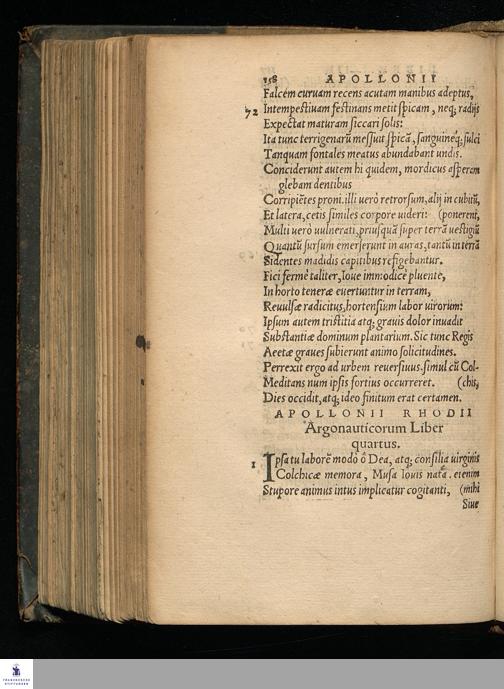 158 APOLLONII
Falcem curuam recens acutam manibus adeptus,
72 Intempestiuam festinans metit spicam, neq; radijs
Expectat maturam siccari solis:
Ita tunc terrigenarū messuit spicā, sanguineq́; sulci
Tanquam fontales meatus abundabant undis.
Conciderunt autem hi quidem, mordicus asperam
glebam dentibus
Corripiẽtes proni. illi uerò retrorsum, alij in cubitū,
Et latera, cetis similes corpore uideri: (ponerent,
Multi uerò uulnerati, priusquā super terrā uestigiū
Quantū sursum emerserunt in auras, tantū in terrā
Sidentes madidis capitibus refigebantur.
Fici fermè taliter, Ioue immodicè pluente,
In horto teneræ euertuntur in terram,
Reuulsæ radicitus, hortensium labor uirorum:
Ipsum autem tristitia atq; grauis dolor inuadit
Substantiæ dominum plantarium. Sic tunc Regis
Aeetæ graues subierunt animo solicitudines.
Perrexit ergo ad urbem reuersiuus. simul cū Col-
Meditans num ipsis fortius occurreret. (chis,
Dies occidit, atq; ideo finitum erat certamen.
APOLLONII RHODII
Argonauticorum Liber
quartus.
1 Ipsa tu laborē modò ô Dea, atq; consilia uirginis
Colchicæ memora, Musa Iouis nata. etenim
Stupore animus intus implicatur cogitanti, (mihi
Siue
FRANCKESCHE
STIFTUNGEN